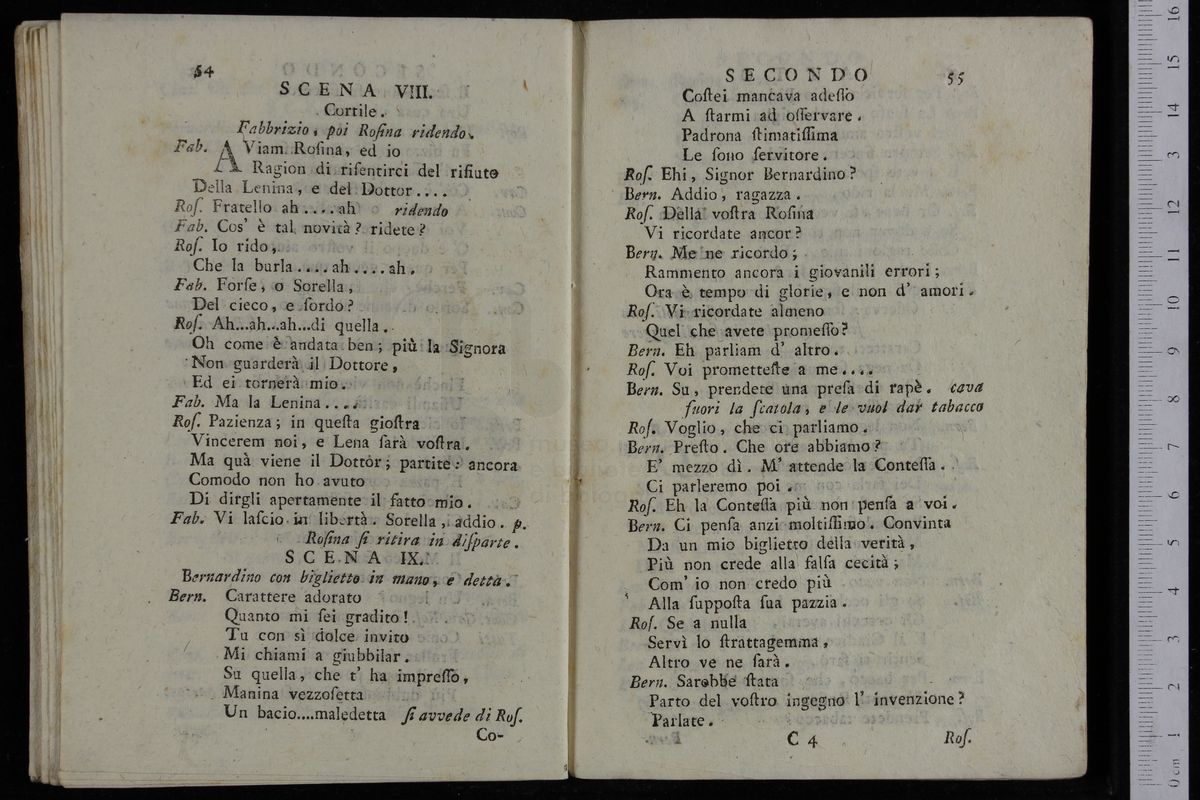 54
SCENA VIII.
Cortile.
Fabbrizio, poi Roſina ridendo.
Fab. AViam Roſina, ed io
Ragion di riſentirci del rifiuto
Della Lenina, e del Dottor....
Roſ. Fratello ah....ah ridendo
Fab. Cos' è tal novità? ridete?
Roſ. Io rido,
Che la burla....ah....ah.
Fab. Forſe, o Sorella,
Del cieco, e ſordo?
Roſ. Ah...ah...ah...di quella.
Oh come è andata ben; più la Signora
Non guarderà il Dottore,
Ed ei tornerà mio.
Fab. Ma la Lenina....
Roſ. Pazienza; in queſta gioſtra
Vincerem noi, e Lena ſarà voſtra.
Ma quà viene il Dottòr; partite: ancora
Comodo non ho avuto
Di dirgli apertamente il fatto mio.
Fab. Vi laſcio in libertà. Sorella, addio. p.
Roſina ſi ritira in diſparte.
SCENA IX.
Bernardino con biglietto in mano, e detta.
Bern. Carattere adorato
Quanto mi ſei gradito!
Tu con sì dolce invito
Mi chiami a giubbilar.
Su quella, che t' ha impreſſo,
Manina vezzoſetta
Un bacio....maledetta ſi avvede di Roſ.
Co-
SECONDO 55
Coſtei mancava adeſſo
A ſtarmi ad oſſervare.
Padrona ſtimatiſſima
Le ſono ſervitore.
Roſ. Ehi, Signor Bernardino?
Bern. Addio, ragazza.
Roſ. Della voſtra Roſina
Vi ricordate ancor?
Bern. Me ne ricordo;
Rammento ancora i giovanili errori;
Ora è tempo di glorie, e non d' amori.
Roſ. Vi ricordate almeno
Quel che avete promeſſo?
Bern. Eh parliam d' altro.
Roſ. Voi prometteſte a me....
Bern. Su, prendete una preſa di rapè. cava
fuori la ſcatola, e le vuol dar tabacco
Roſ. Voglio, che ci parliamo.
Bern. Preſto. Che ore abbiamo?
E' mezzo dì. M' attende la Conteſſa.
Ci parleremo poi.
Roſ. Eh la Conteſſa più non penſa a voi.
Bern. Ci penſa anzi moltiſſimo. Convinta
Da un mio biglietto della verità,
Più non crede alla falſa cecità;
Com' io non credo più
Alla ſuppoſta ſua pazzia.
Roſ. Se a nulla
Servì lo ſtrattagemma,
Altro ve ne ſarà.
Bern. Sarebbe ſtata
Parto del voſtro ingegno l' invenzione?
Parlate.
C 4 Roſ.